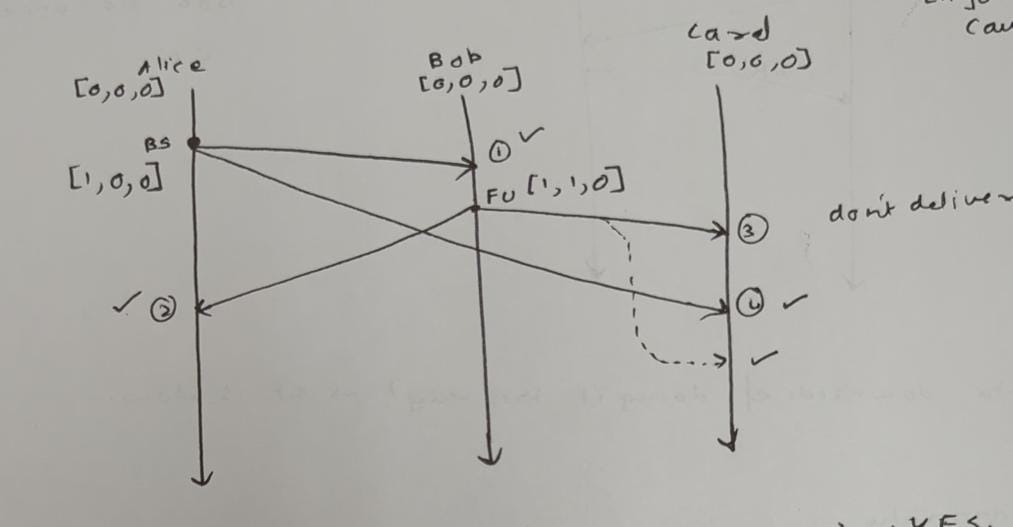 Alice
[0,0,0]
Bob
[0,0,0]
Carol
[0,0,0]
BS
[1,0,0]
① ✓
FU [1,1,0]
③
don't deliver
✓ ②
④ ✓
✓
YES.